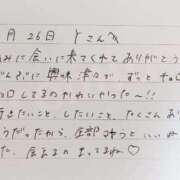 月 26日 Yさんへ
みに会いに来てくれてありがとう
に興味津々で ずっとチ
口してるのかわいかった〜!!
きたいこと、したいこと、たくさんあ
うだったから、全部叶うといいね
た 会えるの まってるね♡